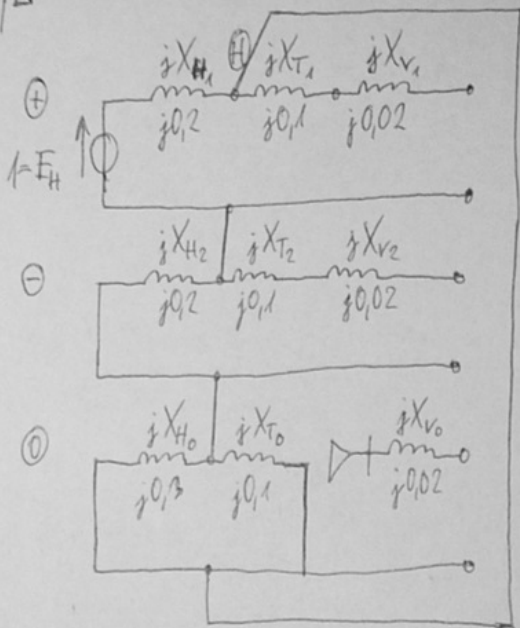 jX_H₁ Ⓗ jX_T₁ jX_V₁
⊕ j0,2 j0,1 j0,02
1=E_H
jX_H₂ jX_T₂ jX_V₂
⊖ j0,2 j0,1 j0,02
jX_H₀ jX_T₀ jX_V₀
⓪ j0,3 j0,1 j0,02